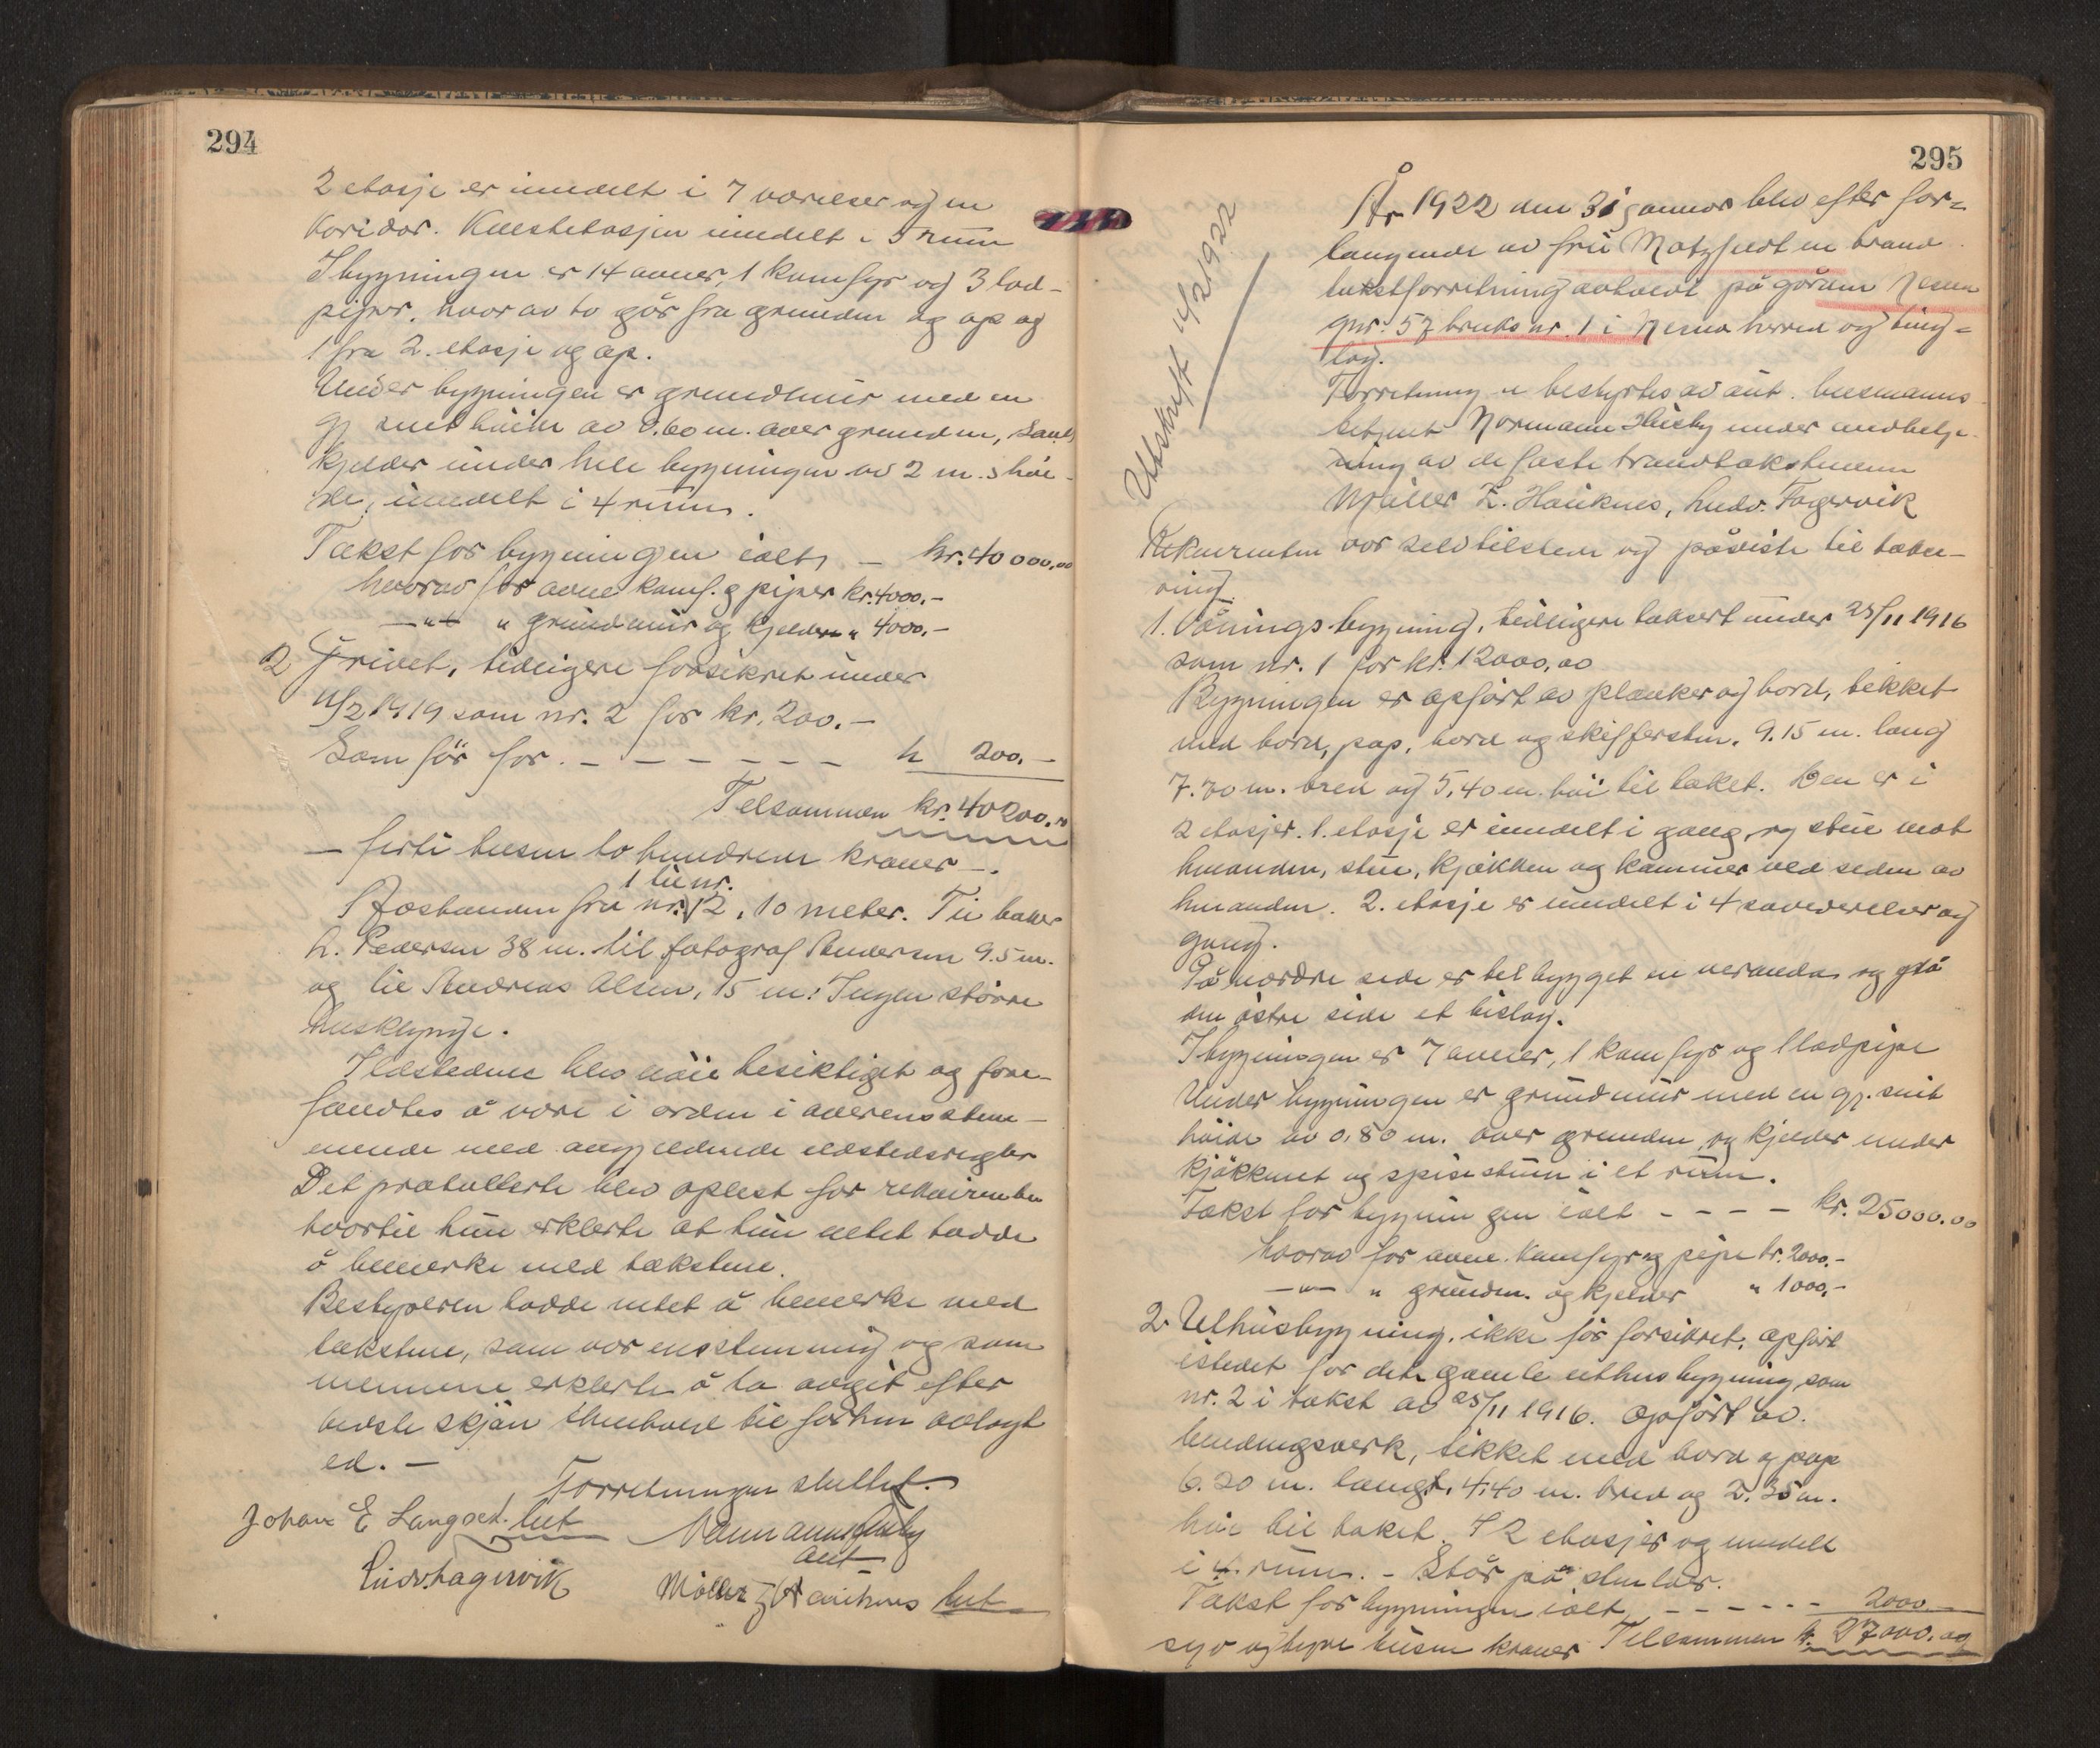 294
2 etasje er inndelt i 7 værelser og en
koridor. Kvistetasjen inndelt i 5 rum
I bygningen er 14 ovner, 1 komfyr og 3 lod-
piper, hvor av to går fra grunden og op og
1 fra 2. etasje og op.
Under bygningen er grundmur med en
gj. snit høide av 0.60 m. over grunden, samt
kjelder under hele bygningen av 2 m.s høi-
de, inndelt i 4 rum.
Takst for bygningen ialt, - kr. 40 000,00
hvorav for ovne komf. og piper kr. 4000.-
-"- " grundmur og kjelder " 4000.-
2 Privet, tidligere forsikret under
11/2 1919 som nr. 2 for kr. 200.-
Som før for. - - - - - - - kr 200.-
Tilsammen kr. 40200.00
- firti tusen to hundrede kroner -.
Avstanden fra nr. 1 til nr. 2, 10 meter. Til baker
H. Pedersen 38 m. til fotograf Andersen 9.5 m.
og til Andreas Olsen, 15 m: Ingen større
husklynge.
Ildstedene blev nøie besiktiget og fore-
fandtes å være i orden i overensstem-
mende med angjeldende ildstedsregler
Det protollerte blev oplest for rekvirenten
hvortil hun erklerte at hun intet hadde
å bemerke med takstene.
Bestyreren hadde intet å bemerke med
takstene, som var enstemmig og som
mennene erklerte å ha avgit efter
bedste skjøn i henhold til forhen avlagt
ed. -
Forretningen sluttet.
Johan E Langset. lut
Normann Husby
aut
Ludv. Fagervik
Møller Z Hauknes lut
295
Utskrift 11/2 1922
År 1922 den 31 januar blev efter for-
langende av fru Motzfeldt en brand-
takstforretning avholdt på gården Nesna
gnr. 57 bruksnr. 1 i Nesna herred og ting-
lag.
Forretningen bestyrtes av aut. lensmanns
betjent Normann Husby under medhelp-
ning av de faste brandtakstmenn
Møller Z. Hauknes, Ludv. Fagervik
Rekvirenten var selv tilstede og påviste til takse-
ring.
1. Våningsbygning, tidligere taksert under 25/11 1916
som nr. 1 for kr. 12000,00
Bygningen er opført av planker og bord, tekket
med bord, pap, bord og skiffersten. 9.15 m. lang
7.70 m. bred og 5,40 m. høi til taket. Den er i
2 etasjer. 1. etasje er inndelt i gang, og stue mot
hinanden, stue, kjøkken og kammer ved siden av
hinanden. 2. etasje er inndelt i 4 soveværelser og
gang.
På nordre side er tilbygget en veranda og på
den østre side et bislag.
I bygningen er 7 ovner, 1 komfyr og 1 lodpipe
Under bygningen er grundmur med en gj. snit
høide av 0,80 m. over grunden og kjelder under
kjøkkenet og spisestuen i et rum.
Takst for bygningen ialt - - - - kr. 25000.00
hvorav for ovne. komfyr og pipe kr. 2000.-
-"- " grundm. og kjelder " 1000.-
2. Uthusbygning, ikke før forsikret, opført
istedet for det gamle uthusbygning som
nr. 2 i takst av 25/11 1916. Opført av
bindingsverk, tekket med bord og pap
6.20 m. langt, 4.40 m. bred og 2.35 m.
høi til taket. I 2 etasjer og inndelt
i 4 rum. - Står på stolper.
Takst for bygningen ialt, - - - - - - 2000.-
syv og tyve tusen kroner Tilsammen kr. 27000.00